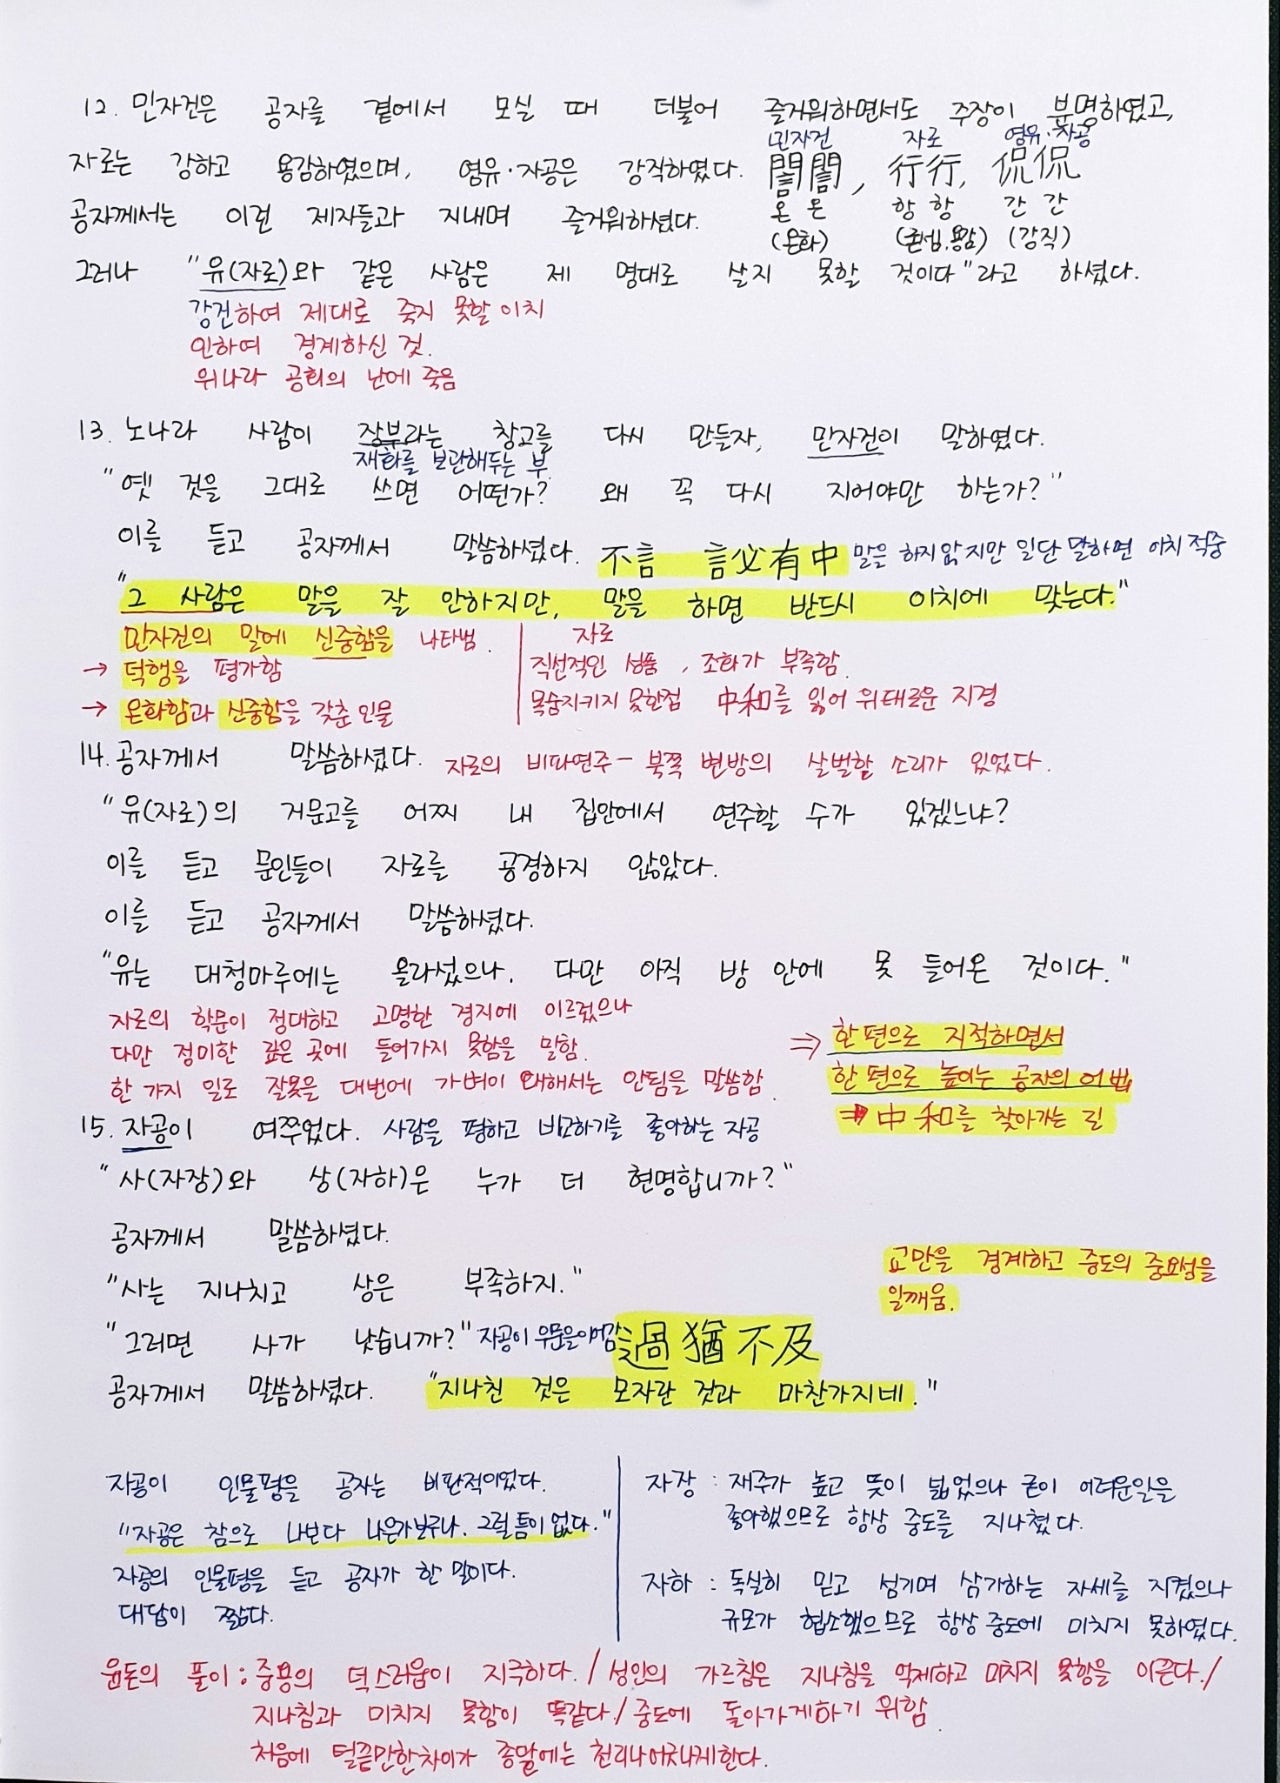 12. 민자건은 공자를 곁에서 모실 때 더불어 즐거워하면서도 주장이 분명하였고,
민자건 자로 염유·자공
자로는 강하고 용감하였으며, 염유·자공은 강직하였다. 誾誾, 行行, 侃侃
은 은 항 항 간 간
공자께서는 이런 제자들과 지내며 즐거워하셨다.
(온화) (굳셈.용감) (강직)
그러나 "유(자로)와 같은 사람은 제 명대로 살지 못할 것이다"라고 하셨다.
강건하여 제대로 죽지 못할 이치
인하여 경계하신 것.
위나라 공회의 난에 죽음
13. 노나라 사람이 장부라는 창고를 다시 만들자, 민자건이 말하였다.
재화를 보관해두는 부.
"옛 것을 그대로 쓰면 어떤가? 왜 꼭 다시 지어야만 하는가?"
이를 듣고 공자께서 말씀하셨다. 不言 言必有中 말을 하지않지만 일단 말하면 이치적중
"그 사람은 말을 잘 안하지만, 말을 하면 반드시 이치에 맞는다."
민자건의 말에 신중함을 나타냄.
→ 덕행을 평가함
→ 온화함과 신중함을 갖춘 인물
자로
직선적인 성품, 조화가 부족함.
목숨지키지 못한점 中和를 잃어 위태로운 지경
14. 공자께서 말씀하셨다. 자로의 비파연주 - 북쪽 변방의 살벌할 소리가 있었다.
"유(자로)의 거문고를 어찌 내 집안에서 연주할 수가 있겠느냐?
이를 듣고 문인들이 자로를 공경하지 않았다.
이를 듣고 공자께서 말씀하셨다.
"유는 대청마루에는 올라섰으나. 다만 아직 방 안에 못 들어온 것이다."
자로의 학문이 정대하고 고명한 경지에 이르렀으나
다만 정미한 깊은 곳에 들어가지 못함을 말함.
한 가지 일로 잘못을 대번에 가벼이 대해서는 안됨을 말씀함.
⇒ 한편으로 지적하면서
한편으로 높이는 공자의 어법
⇒ 中和를 찾아가는 길
15. 자공이 여쭈었다. 사람을 평하고 비교하기를 좋아하는 자공
"사(자장)와 상(자하)은 누가 더 현명합니까?"
공자께서 말씀하셨다.
"사는 지나치고 상은 부족하지."
교만을 경계하고 중도의 중요성을
일깨움.
"그러면 사가 낫습니까?" 자공이 우문을이어감 過猶不及
공자께서 말씀하셨다. "지나친 것은 모자란 것과 마찬가지네."
자공이 인물평을 공자는 비판적이었다.
"자공은 참으로 나보다 나은가보구나. 그럴 틈이 없다."
자공의 인물평을 듣고 공자가 한 말이다.
대답이 짧다.
자장 : 재주가 높고 뜻이 넓었으나 굳이 어려운일을
좋아했으므로 항상 중도를 지나쳤다.
자하 : 독실히 믿고 섬기며 삼가하는 자세를 지켰으나
규모가 협소했으므로 항상 중도에 미치지 못하였다.
윤돈의 풀이 : 중용의 덕스러움이 지극하다. / 성인의 가르침은 지나침을 억제하고 미치지 못함을 이끈다. /
지나침과 미치지 못함이 똑같다. / 중도에 돌아가게하기 위함
처음에 털끝만한차이가 종말에는 천리나어긋나게한다.